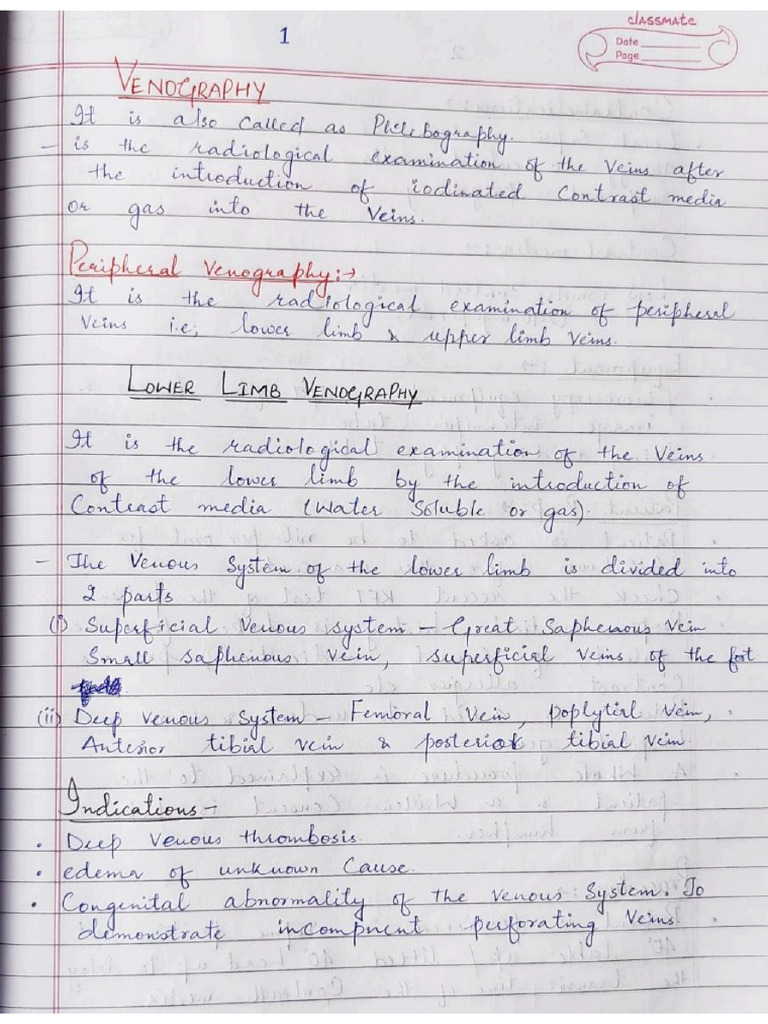 1
classmate
Date
Page
VENOGRAPHY
It is also called as Phlebography.
– is the radiological examination of the Veins after
the introduction of iodinated Contrast media
or gas into the Veins.
Peripheral Venography:→
It is the radiological examination of peripheral
Veins i.e; lower limb & upper limb Veins.
LOWER LIMB VENOGRAPHY
It is the radiological examination of the Veins
of the lower limb by the introduction of
Contrast media (Water Soluble or gas).
– The Venous System of the lower limb is divided into
2 parts
(i) Superficial Venous system – Great Saphenous Vein
Small saphenous vein, superficial veins of the foot
(ii) Deep venous System – Femoral Vein, poplytial Vein,
Anterior tibial vein & posterior tibial vein
Indications –
• Deep Venous thrombosis.
• edema of unknown Cause.
• Congenital abnormality of the venous System. To
demonstrate incompnent perforating Veins